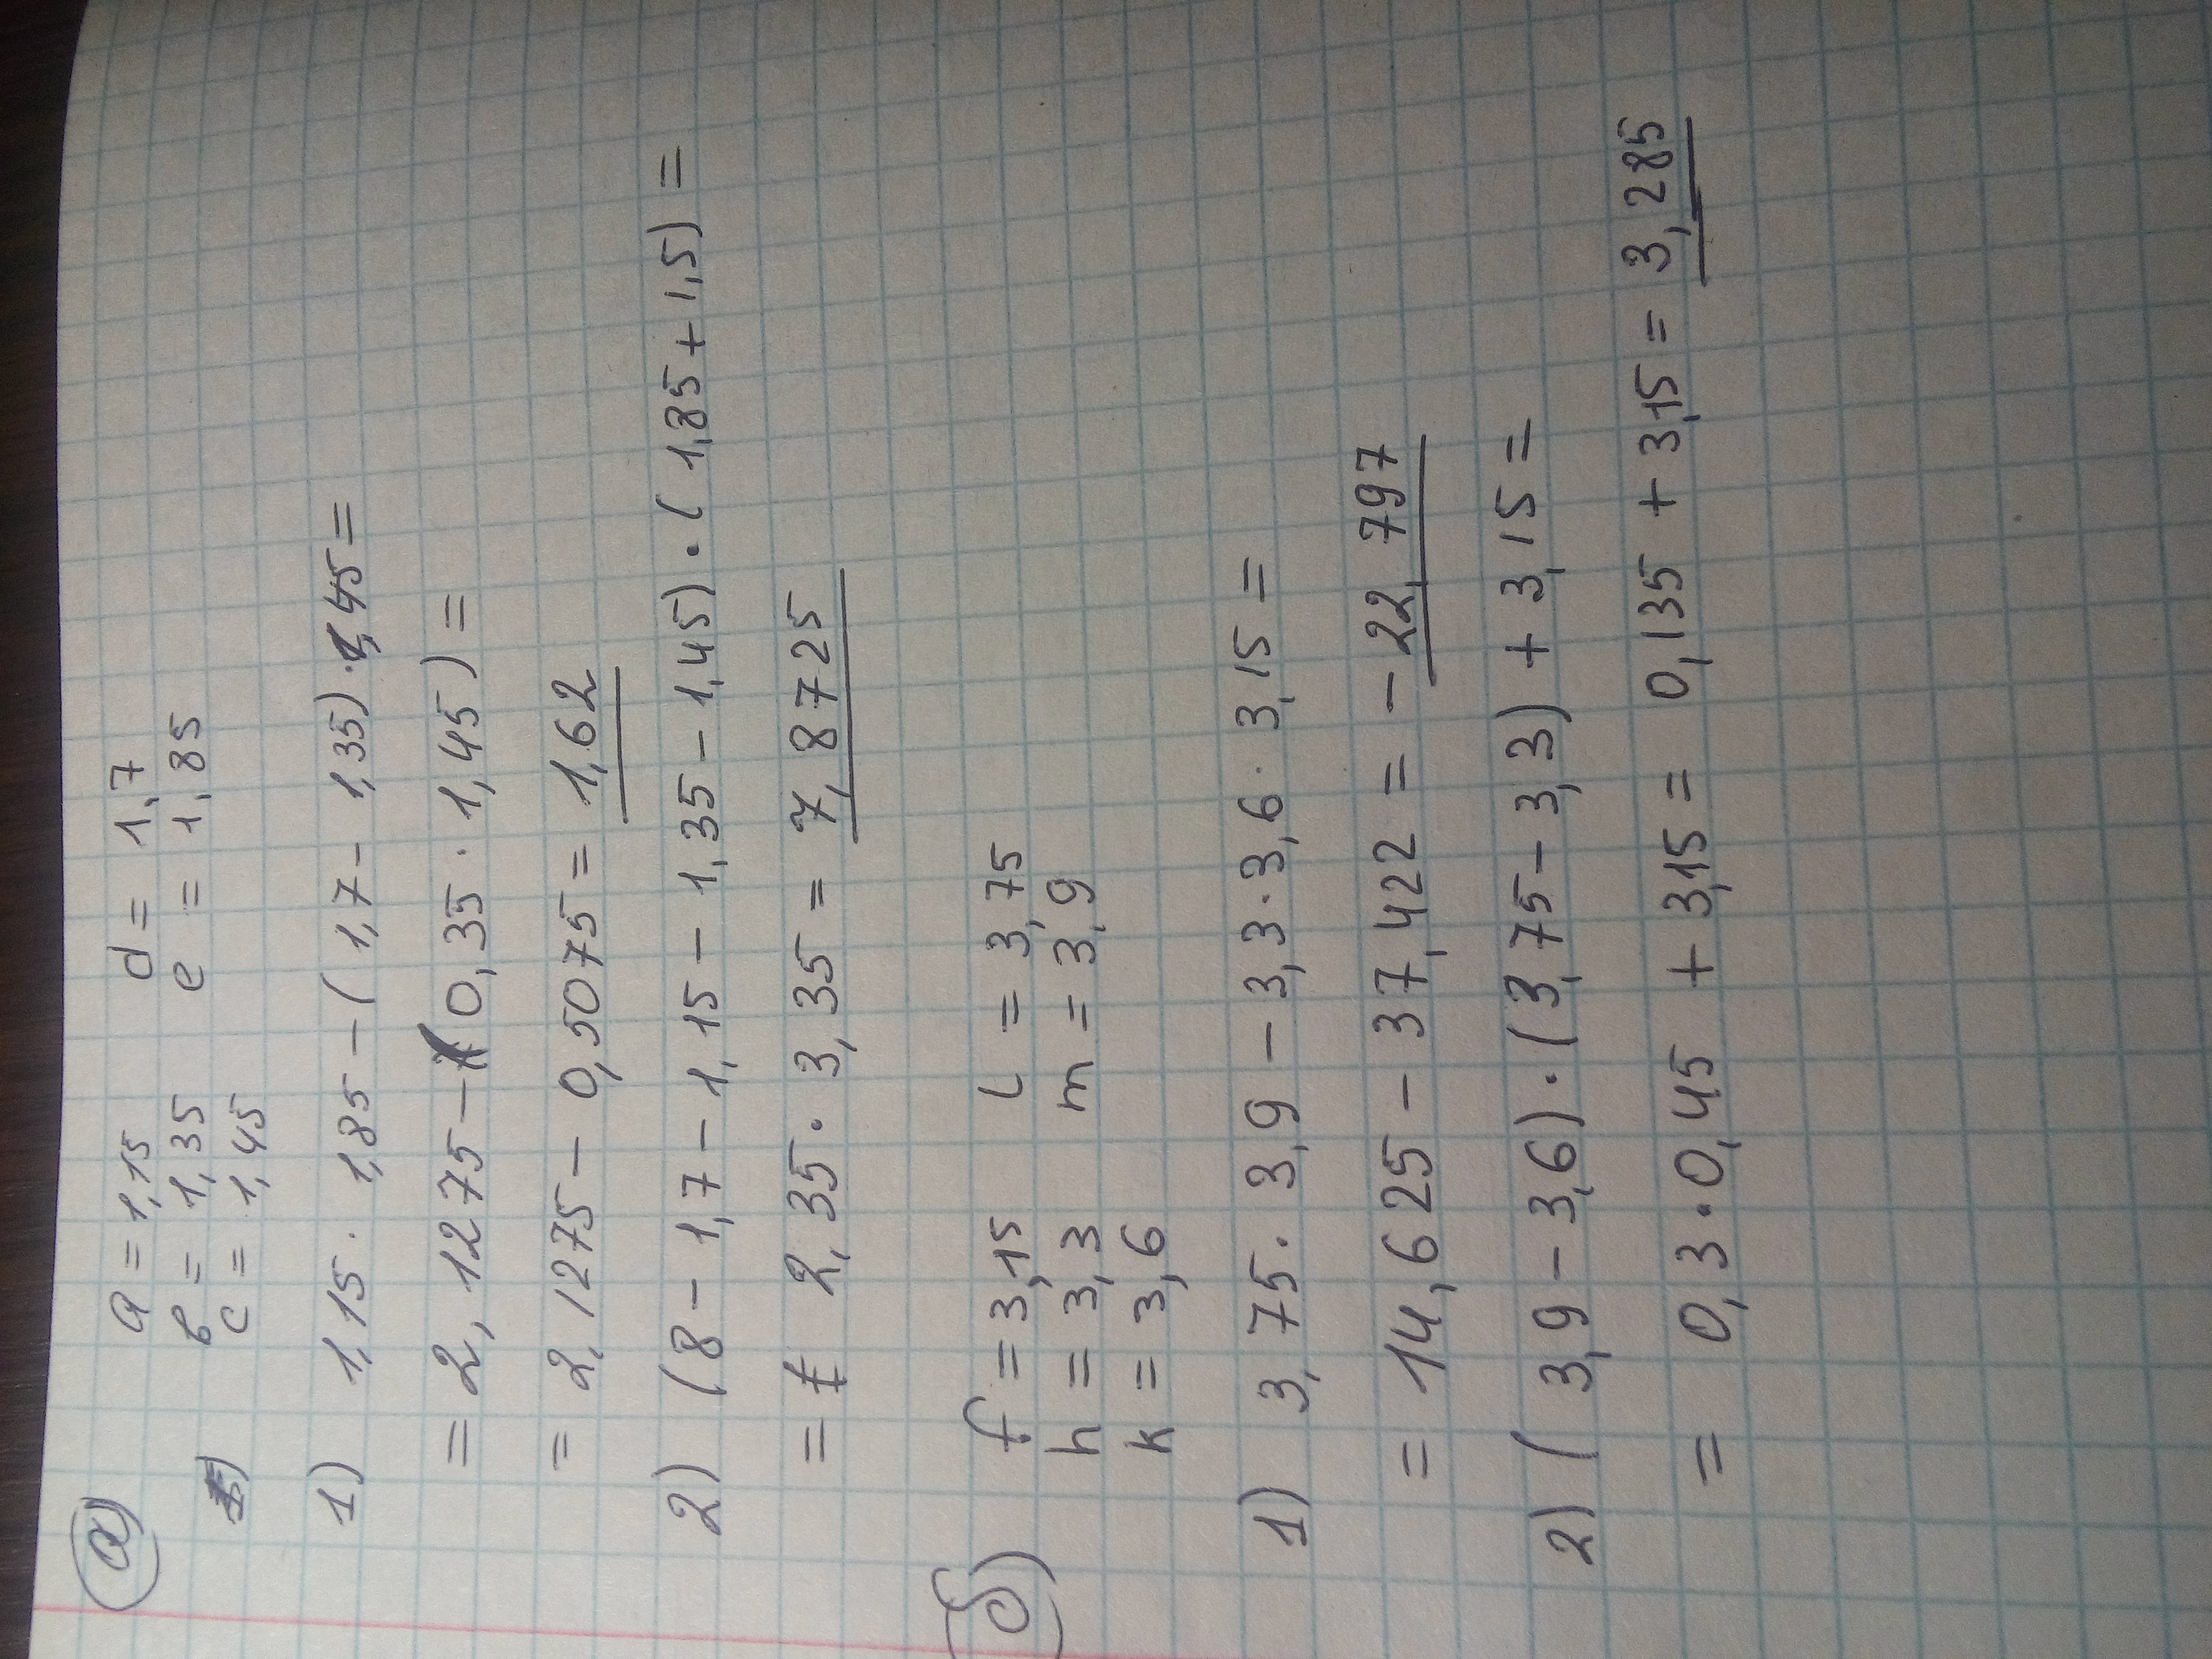 а)
a = 1,15 d = 1,7
в = 1,35 e = 1,85
c = 1,45
1) 1,15 · 1,85 - (1,7 - 1,35) · 1,45 =
= 2,1275 - (0,35 · 1,45) =
= 2,1275 - 0,5075 = 1,62
2) (8 - 1,7 - 1,15 - 1,35 - 1,45) · (1,85 + 1,5) =
= 2,35 · 3,35 = 7,8725
б)
f = 3,15 L = 3,75
h = 3,3 m = 3,9
k = 3,6
1) 3,75 · 3,9 - 3,3 · 3,6 · 3,15 =
= 14,625 - 37,422 = - 22,797
2) (3,9 - 3,6) · (3,75 - 3,3) + 3,15 =
= 0,3 · 0,45 + 3,15 = 0,135 + 3,15 = 3,285